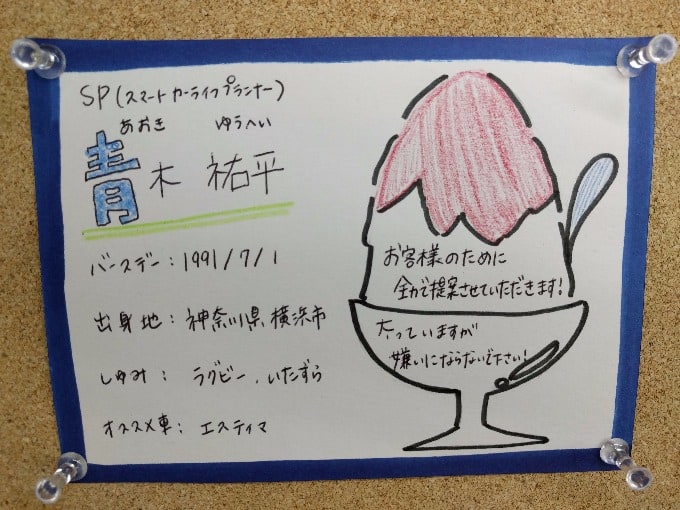 SP(スマートカーライフプランナー)
あおき ゆうへい
青木 祐平
バースデー：1991/7/1
出身地：神奈川県横浜市
しゅみ：ラグビー、いたずら
オススメ車：エスティマ
お客様のために
全力で提案させていただきます！
太っていますが
嫌いにならないで下さい！